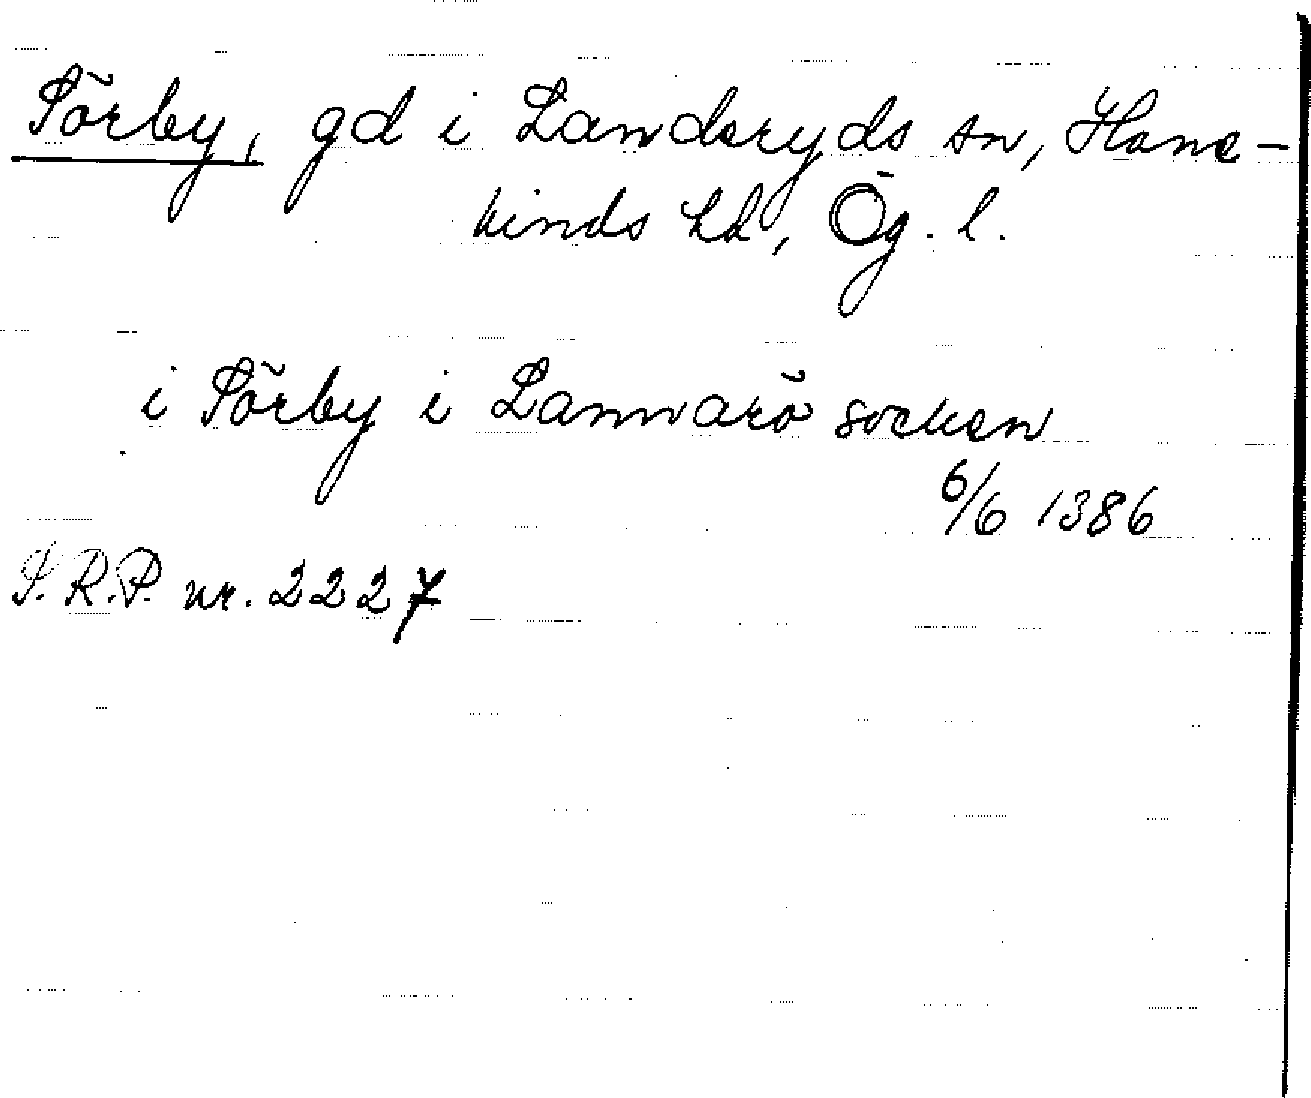 Sörby, gd i Landeryds sn, Hane-
kinds hd, Ög. l.
i Sörby i Lannarö socken
6/6 1386
S.R.P. nr. 2227